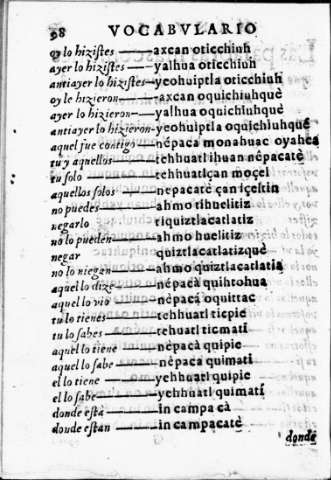 98 VOCABVLARIO
oy lo hizistes axcan oticchiuh
ayer lo hizistes yalhua oticchiuh
antiayer lo hizistes yeohuiptla oticchiuh
oy le hizieron axcan oquichiuhquè
ayer lo hizieron yalhua oquichiuhquè
antiayer lo hizieron yeohuiptla oquichiuhquè
aquel fue contigo nèpaca monahuac oyahca
tu y aquellos tehhuatl ihuan nèpacatè
tu solo tehhuatlçan moçel
aquellos solos nepacatè çan içeltin
no puedes ahmo tihuelitiz
negarlo tiquiztlacatlatiz
no lo pueden ahmo huelitiz
negar quiztlacatlatizquè
no lo niegan ahmo quiztlacatlatia
aquel lo dize nèpacà quihtohua
aquel lo vio nèpacà oquittac
tu lo tienes tehhuatl ticpie
tu lo sabes tehuatl ticmati
aquel lo tiene nèpacà quipie
aquel lo sabe nèpacà quimati
el lo tiene yehhuatl quipie
el lo sabe yehhuatl quimati
donde està in campa cà
donde estan in campacatè
donde